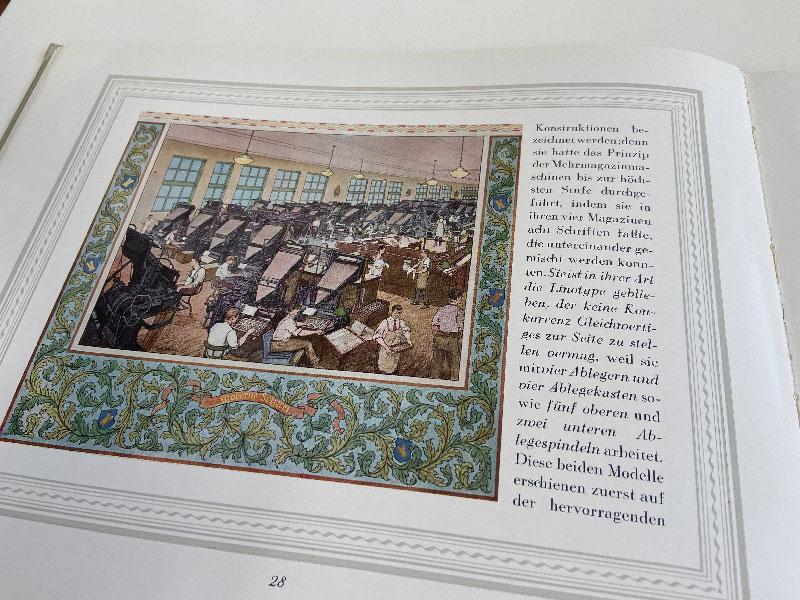 Konstruktionen be-
zeichnet werden; denn
sie hatte das Prinzip
der Mehrmagazinma-
schinen bis zur höch-
sten Stufe durchge-
führt, indem sie in
ihren vier Magazinen
acht Schriften faßte,
die untereinander ge-
mischt werden konn-
ten. Sie ist in ihrer Art
die Linotype geblie-
ben, der keine Kon-
kurrenz Gleichwerti-
ges zur Seite zu stel-
len vermag, weil sie
mit vier Ablegern und
vier Ablegekasten so-
wie fünf oberen und
zwei unteren Ab-
legespindeln arbeitet.
Diese beiden Modelle
erschienen zuerst auf
der hervorragenden
moderne
28